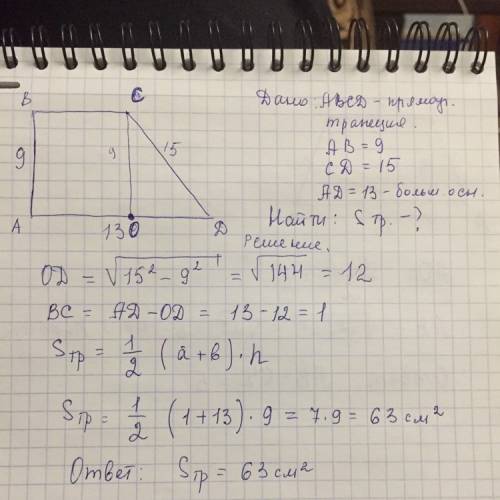 B C
9 9 15
A 13 O D
Дано: ABCD - прямоуг.
трапеция.
AB = 9
CD = 15
AD = 13 - больш. осн.
Найти: S тр. - ?
Решение.
OD = √15² - 9² = √144 = 12
BC = AD - OD = 13 - 12 = 1
Sтр = 1/2 (a + b) · h
Sтр = 1/2 (1 + 13) · 9 = 7 · 9 = 63 см²
Ответ: Sтр = 63 см²